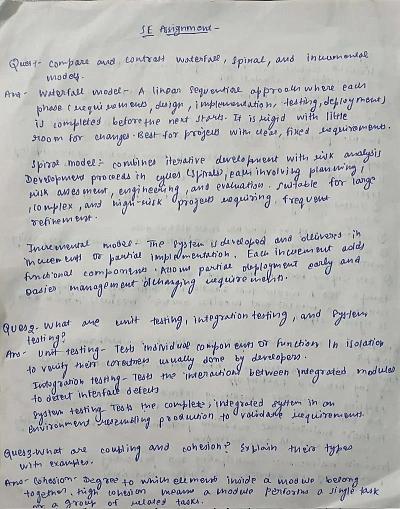 SE Assignment -
Ques1- Compare and contrast waterfall, spiral, and incremental
models.
Ans- Waterfall model - A linear sequential approach where each
phase (requirements, design, implementation, testing, deployment)
is completed before the next starts. It is rigid with little
room for changes. Best for projects with clear, fixed requirements.
Spiral model:- combines iterative development with risk analysis
Development proceeds in cycles (spirals), each involving planning,
risk assesment, engineering, and evaluation. Suitable for large
, complex, and high-risk projects requiring frequent
refinement.
Incremental model - The system is developed and delivers in
increments or partial implementation. Each increment adds
functional components. Allows partial deployment early and
easier management of changing requirements.
Ques2- What are unit testing, integration testing, and system
testing?
Ans- Unit testing - Tests individual components or function In isolation
to verify their correctness usually done by developers.
Integration testing - Tests the interactions between integrated modules
to detect interface defects
System testing Tests the complete, integrated system in an
environment resembling production to validate requirements.
Ques3- What are coupling and cohesion? Explain their types
with examples.
Ans- Cohesion - Degree to which elements inside a module belong
together, high cohesion means a module performs a single task
or a group of related tasks.